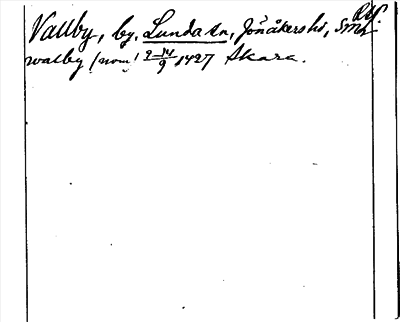 Vallby, by, Lunda sn, Jönåkers hd, Sml.
walby (nom) 9-14/9 1427 Skara.